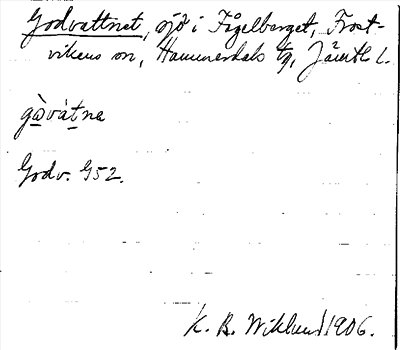 Godvattnet, sjö i Fågelberget, Frost-
vikens sn, Hammerdals tg, Jämtl l.
gò̱vát̲ne
Godv. G52.
K. B. Wiklund 1906.